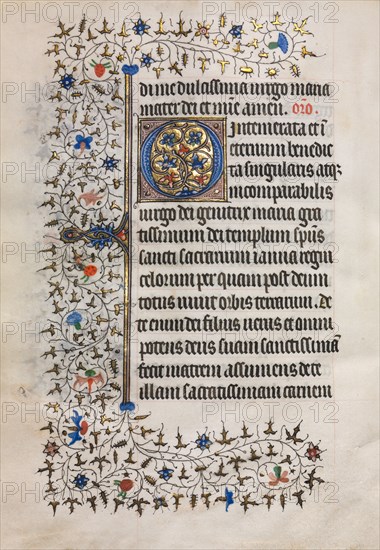 diuie dulcissima virgo maria
mater dei et mīe amen. oro.
O intemerata et i
eternum benedic
ta singularis atq;
incomparabilis
uirgo dei genitrix maria gra
tissimum dei templum spūs
sancti sacrarium ianua regni
celorum per quam post deum
totus uiuit orbis terrarum. De
te enim dei filius uerus et omni
potens deus suam sanctissimā
fecit matrem assumens de te
illam sacratissimam carnem